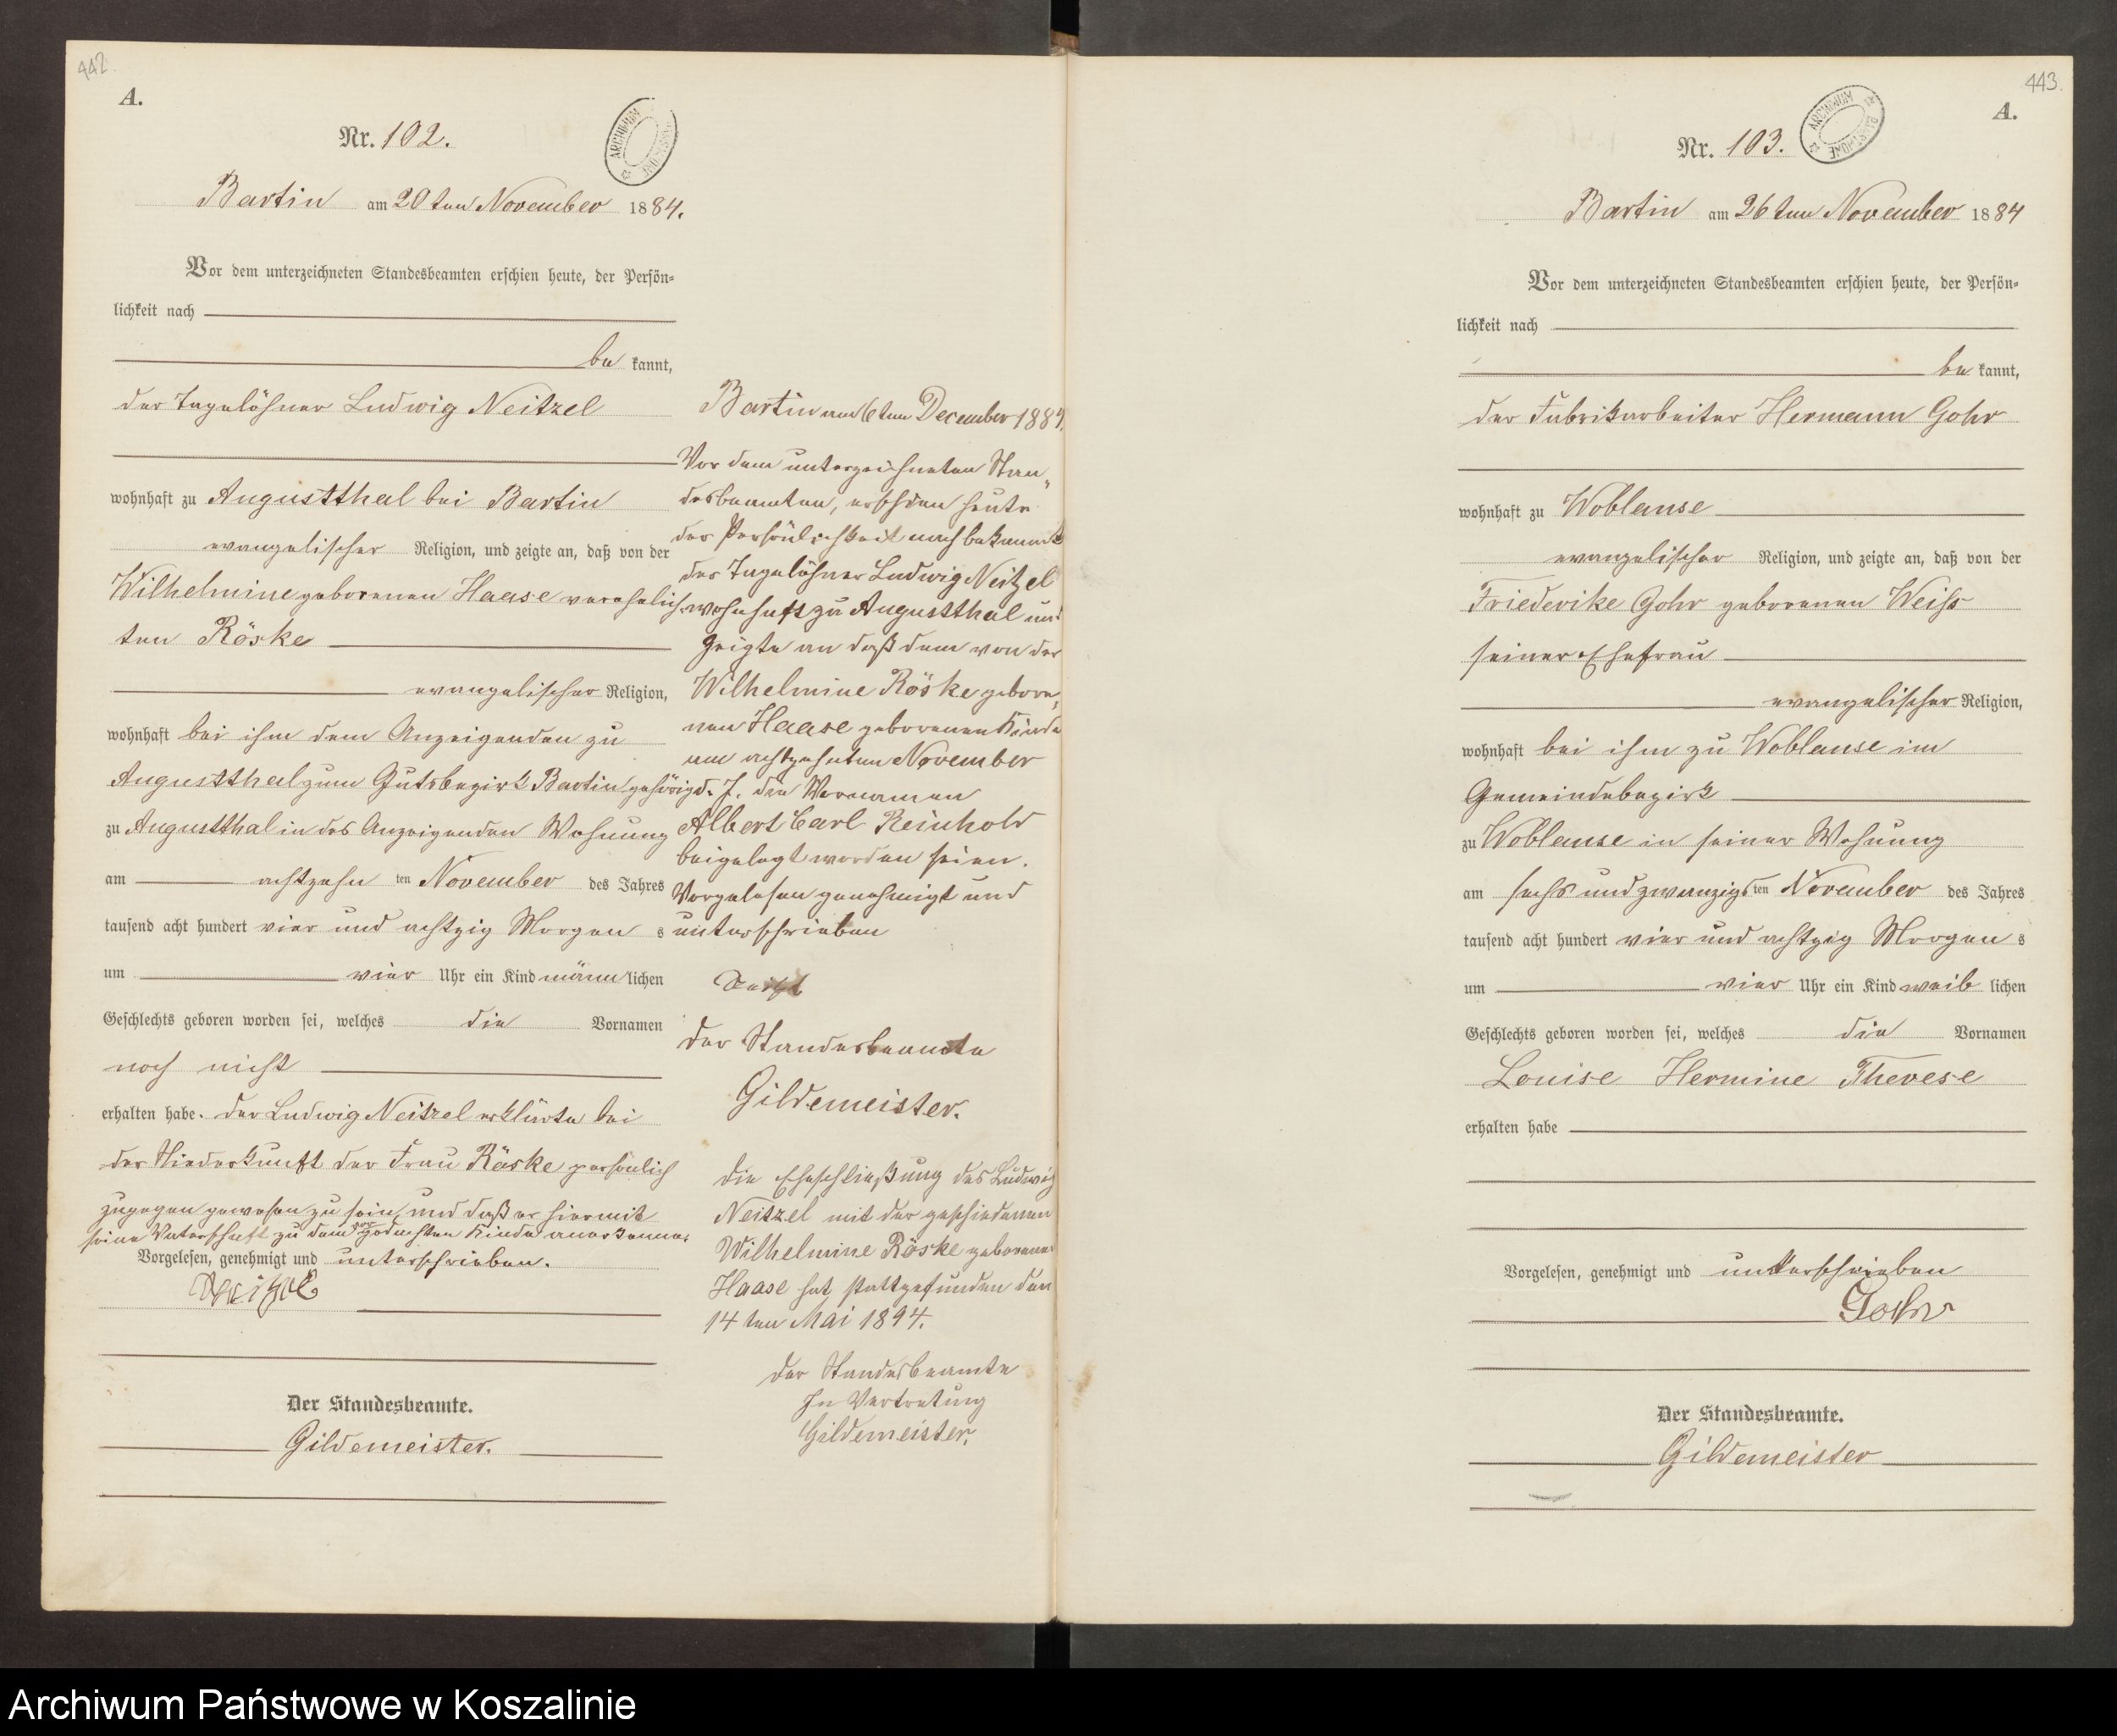 442.
A.
Nr. 102.
ARCHIWUM
Bartin am 20ten November 1884.
Vor dem unterzeichneten Standesbeamten erschien heute, der Persön-
lichkeit nach
be kannt,
der Tagelöhner Ludwig Neitzel
wohnhaft zu Augustthal bei Bartin
evangelischer Religion, und zeigte an, daß von der
Wilhelmine geborenen Haase verehelich-
ten Röske
evangelischer Religion,
wohnhaft bei ihm dem Anzeigenden zu
Augustthal zum Gutsbezirk Bartin gehörig
zu Augustthal in des Anzeigenden Wohnung
am achtzehn ten November des Jahres
tausend acht hundert vier und achtzig Morgen s
um vier Uhr ein Kind männ lichen
Geschlechts geboren worden sei, welches die Vornamen
noch nicht
erhalten habe. Der Ludwig Neitzel erklärte bei
der Niederkunft der Frau Röske persönlich
zugegen gewesen zu sein, und daß er hiermit
seine Vaterschaft zu dem vorgedachten Kinde anerkenne.
Vorgelesen, genehmigt und unterschrieben.
Neitzel
Der Standesbeamte.
Gildemeister.
Bartin am 6ten December 1884.
Vor dem unterzeichneten Stan„
desbeamten, erschien heute
der Persönlichkeit nach bekannt
der Tagelöhner Ludwig Neitzel
wohnhaft zu Augustthal und
zeigte an daß dem von der
Wilhelmine Röske gebore„
nen Haase geborenen Kinde
am achtzehnten November
d. J. die Vornamen
Albert Carl Reinhold
beigelegt worden seien.
Vorgelesen genehmigt und
unterschrieben
Neitzel
Der Standesbeamte
Gildemeister.
Die Eheschließung des Ludwig
Neitzel mit der geschiedenen
Wilhelmine Röske geborene
Haase hat stattgefunden den
14ten Mai 1894.
Der Standesbeamte
In Vertretung
Gildemeister.
443.
A.
Nr. 103.
ARCHIWUM
Bartin am 26ten November 1884
Vor dem unterzeichneten Standesbeamten erschien heute, der Persön-
lichkeit nach
be kannt,
der Fabrikarbeiter Hermann Gohr
wohnhaft zu Woblanse
evangelischer Religion, und zeigte an, daß von der
Friederike Gohr geborenen Weiß
seiner Ehefrau
evangelischer Religion,
wohnhaft bei ihm zu Woblanse im
Gemeindebezirk
zu Woblanse in seiner Wohnung
am sechs und zwanzigs ten November des Jahres
tausend acht hundert vier und achtzig Morgen s
um vier Uhr ein Kind weib lichen
Geschlechts geboren worden sei, welches die Vornamen
Louise Hermine Therese
erhalten habe
Vorgelesen, genehmigt und unterschrieben
Gohr
Der Standesbeamte.
Gildemeister
Archiwum Państwowe w Koszalinie